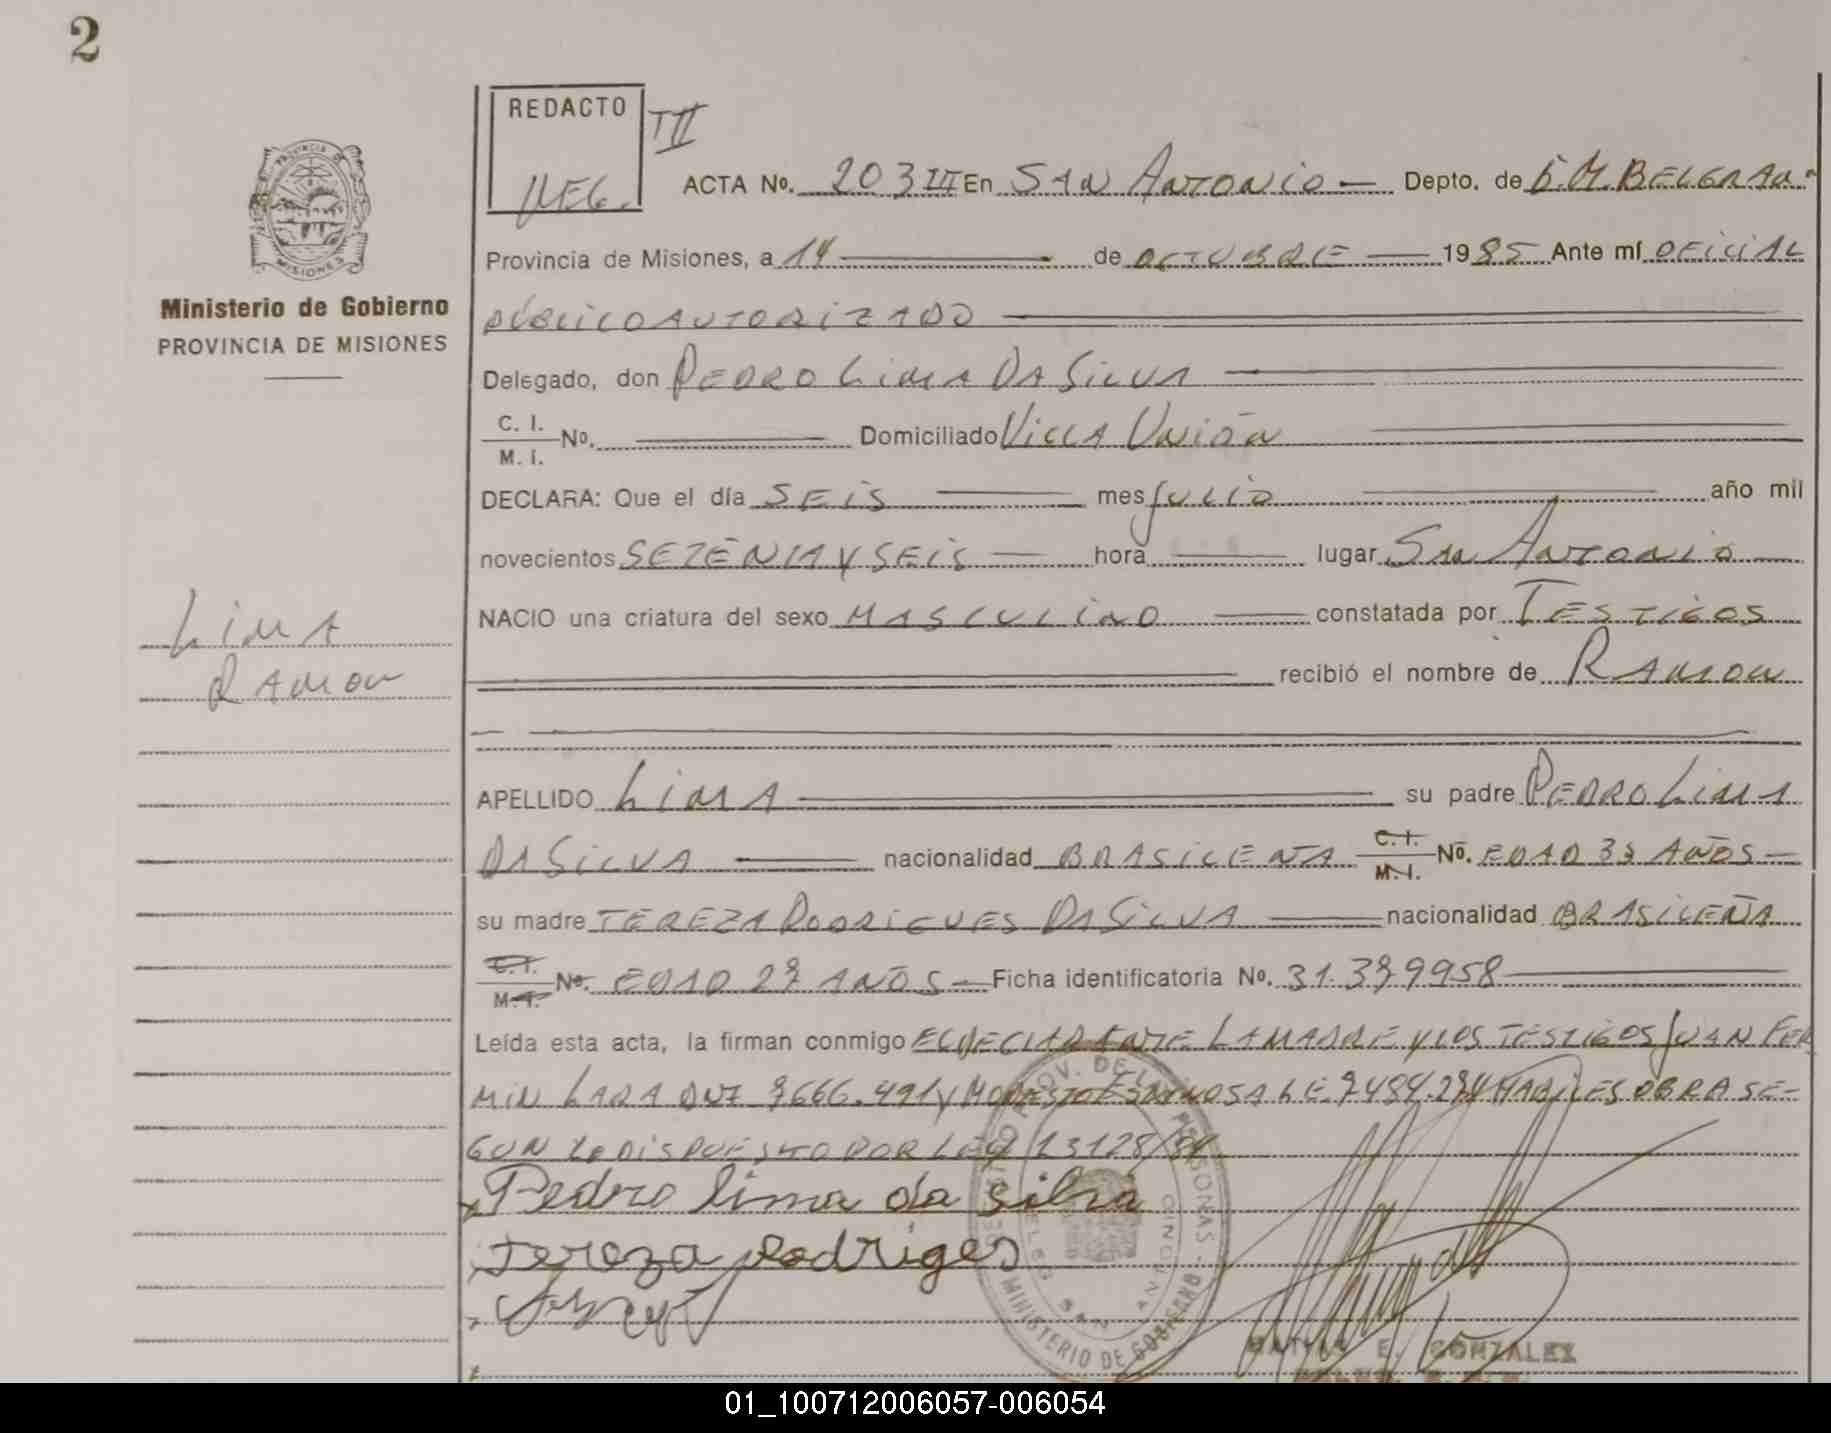 2
REDACTO
TII
ACTA No. 203 III En SAN ANTONIO Depto. de G.M. BELGRANO
Provincia de Misiones, a 14 de OCTUBRE 1985 Ante mí OFICIAL
PÚBLICO AUTORIZADO
Ministerio de Gobierno
PROVINCIA DE MISIONES
Delegado, don PEDRO LIMA DA SILVA
C. I.
M. I. No. Domiciliado VILLA UNIÓN
DECLARA: Que el día SEIS mes JULIO año mil
novecientos SETENTA Y SEIS hora lugar SAN ANTONIO
NACIO una criatura del sexo MASCULINO constatada por TESTIGOS
recibió el nombre de RAMON
LIMA
RAMON
APELLIDO LIMA su padre PEDRO LIMA
DA SILVA nacionalidad BRASILEÑA C. I. M. I. No. EDAD 33 AÑOS
su madre TEREZA RODRIGUES DA SILVA nacionalidad BRASILEÑA
C. I. M. I. No. EDAD 27 AÑOS Ficha identificatoria No. 31.339958
Leída esta acta, la firman conmigo EL DECLARANTE LA MADRE Y LOS TESTIGOS JUAN FER
MIN LARA DNI 7666.491 Y MODESTO ESPINOSA L.E. 7484.274 HABILES OBRA SE-
GUN LO DISPUESTO POR LEY 23128/84
Pedro lima da silva
Tereza Rodriges
MINISTERIO DE GOBIERNO
E. GONZALEZ
01_100712006057-006054